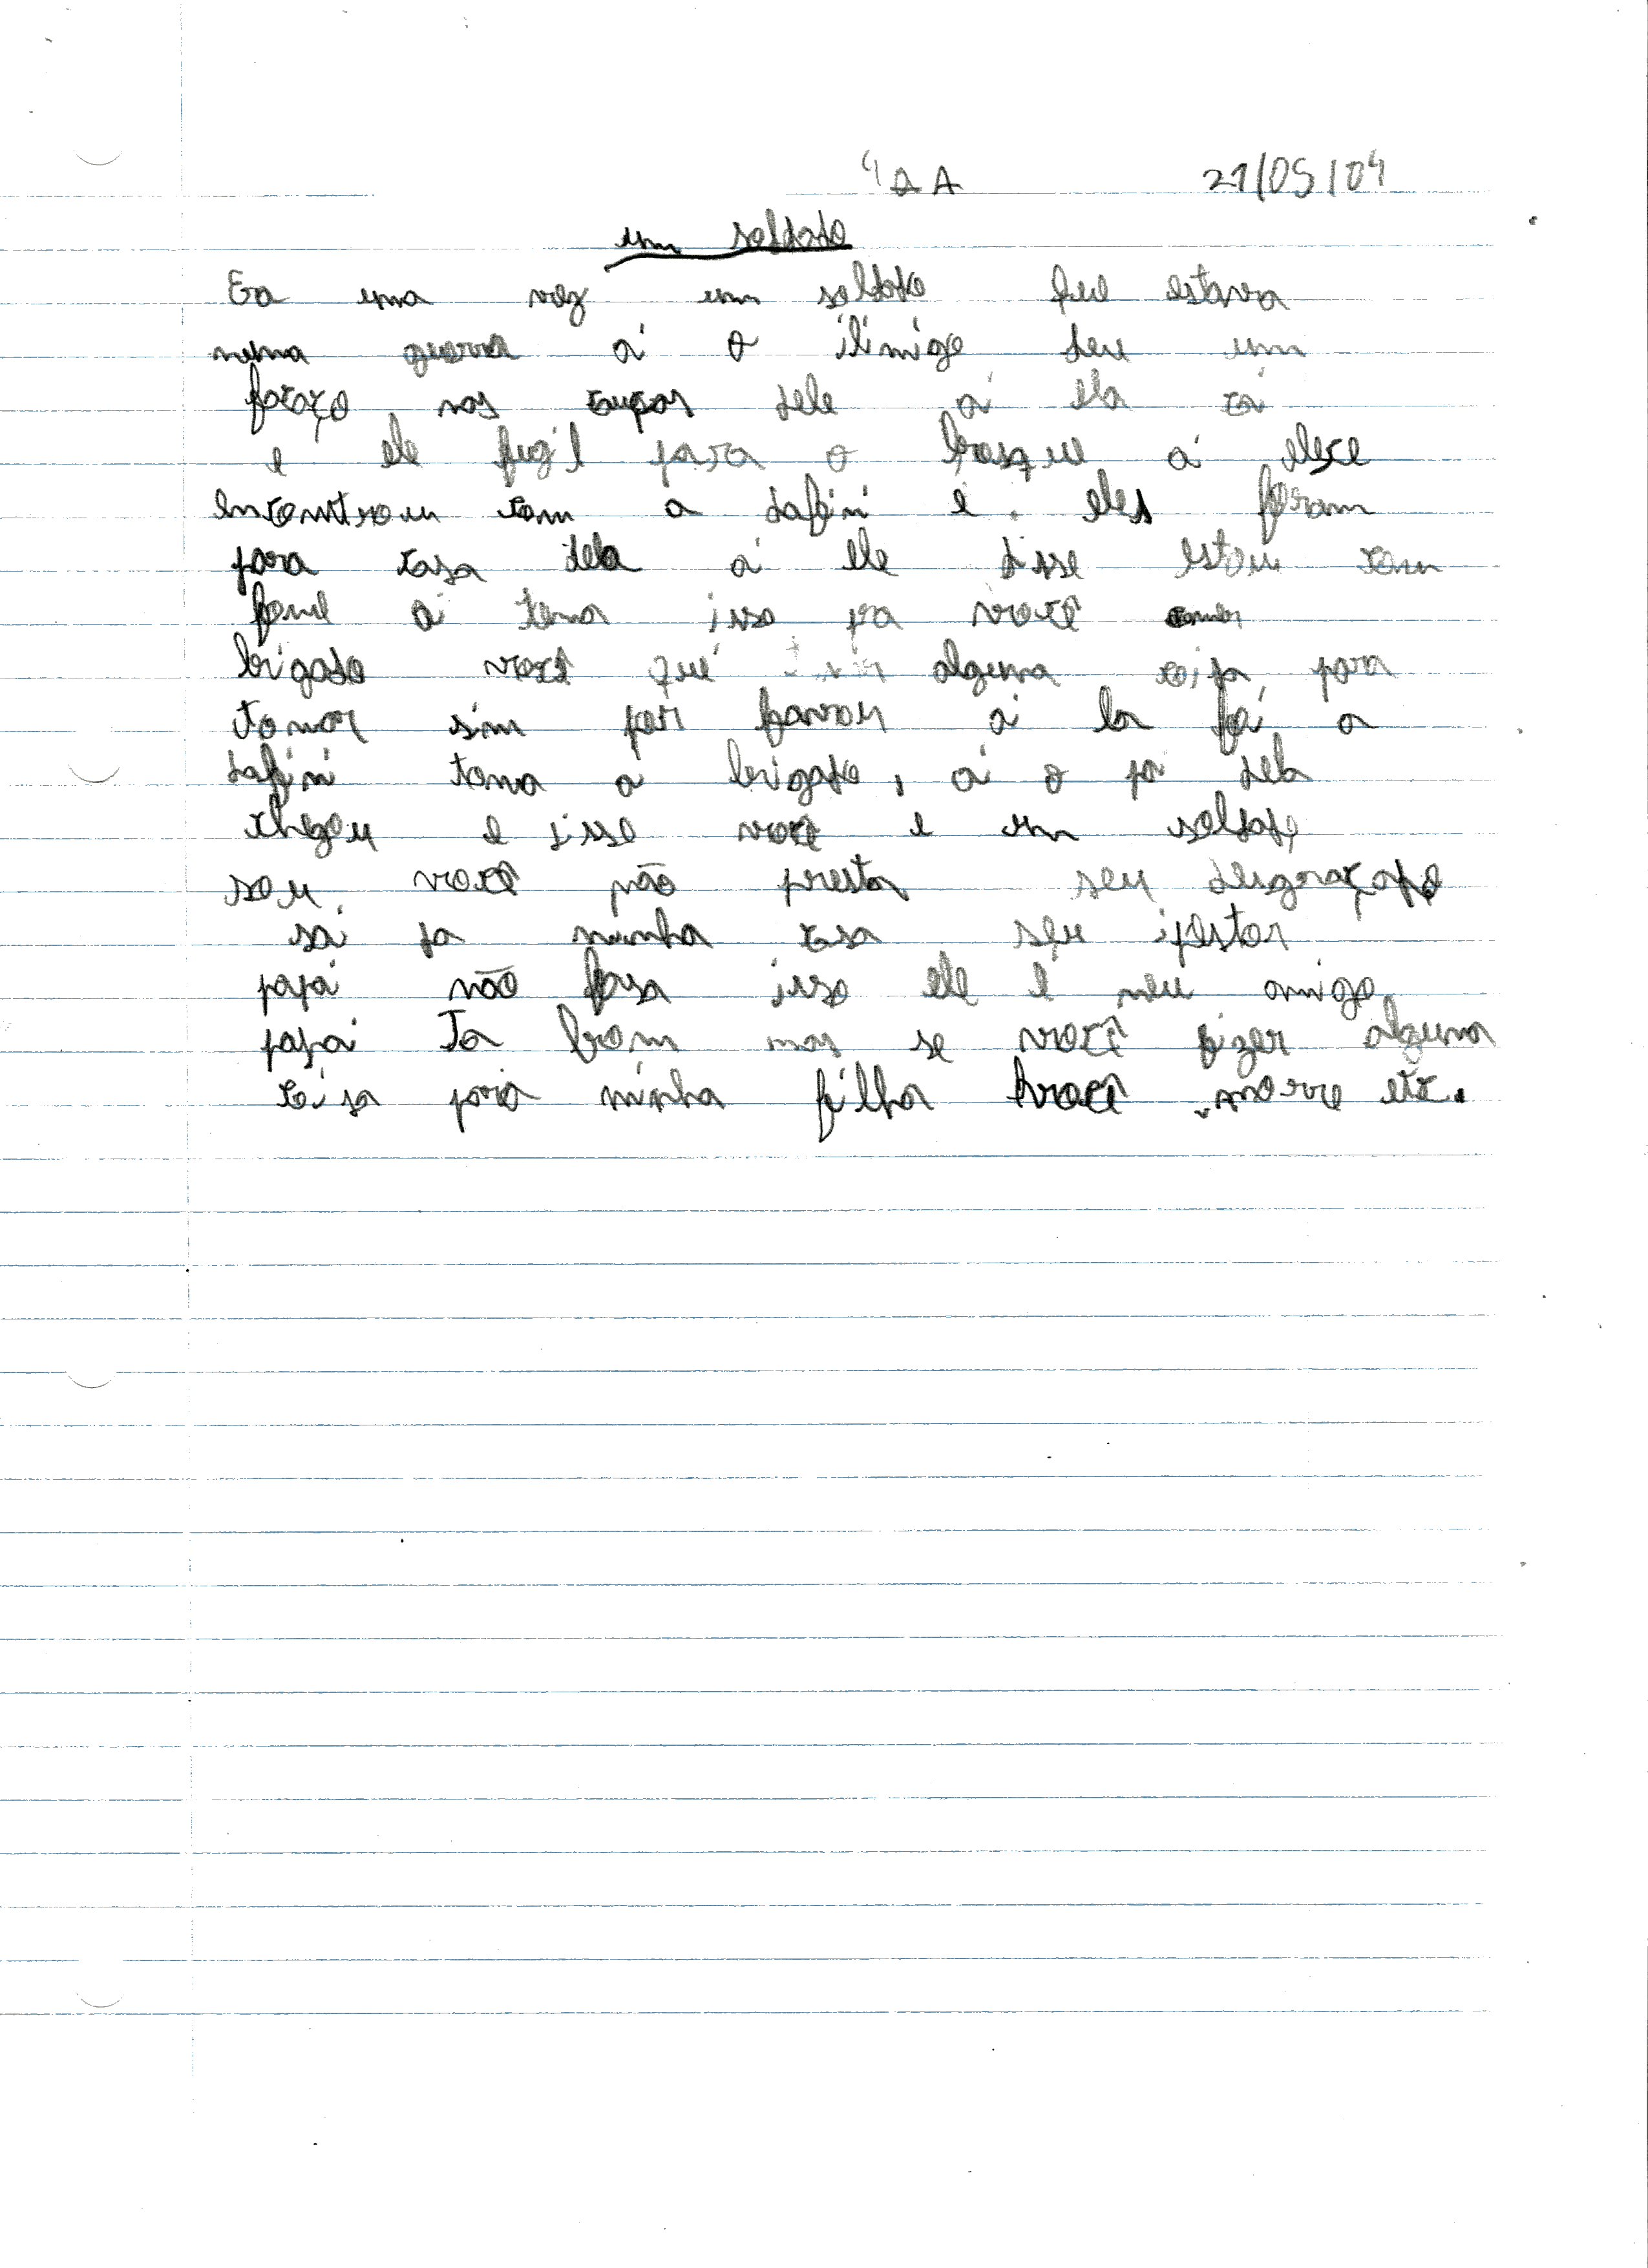 4a A 21/05/04
um soldado
Era uma vez um soldado que estava
numa guerra aí o ilimigo deu um
facaço nas dele aí ela caí
e ele fuzil para o bosque aí elece
encontrou com a dafini e eles foram
para casa dela aí ele disse estou com
fome ai toma isso pa você comer
brigado você qué alguma coisa para
tomar sim por favou ai la fai a
dafini toma a brigado, ai o pai dela
chegou e disse você e um soldado
sou você não presta seu desgraçado
sai da minha casa seu ipestor
papai não fasa isso ele é meu amigo
papai Ta bom mas se você fizer alguma
coisa para minha filha você morre etc.